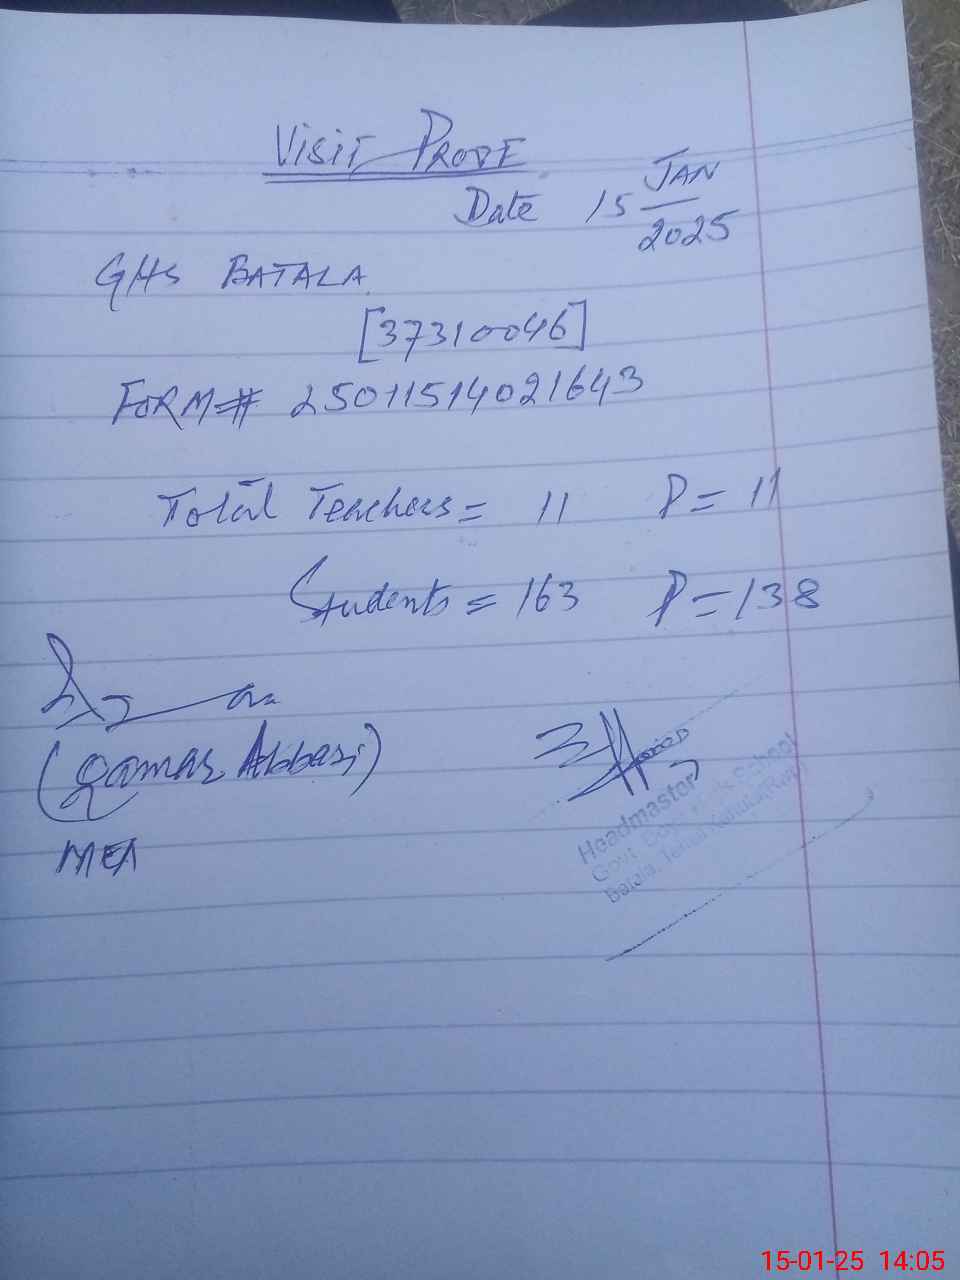 Visit PROOF
Date 15 JAN
2025
GHS BATALA
[37310046]
FORM# 25011514021643
Total Teachers = 11 P = 11
Students = 163 P = 138
(Qamar Abbasi)
MEA
Headmaster
Govt. Boys High School
Batala, Tehsil Kahuta (Rwp)
15-01-25 14:05